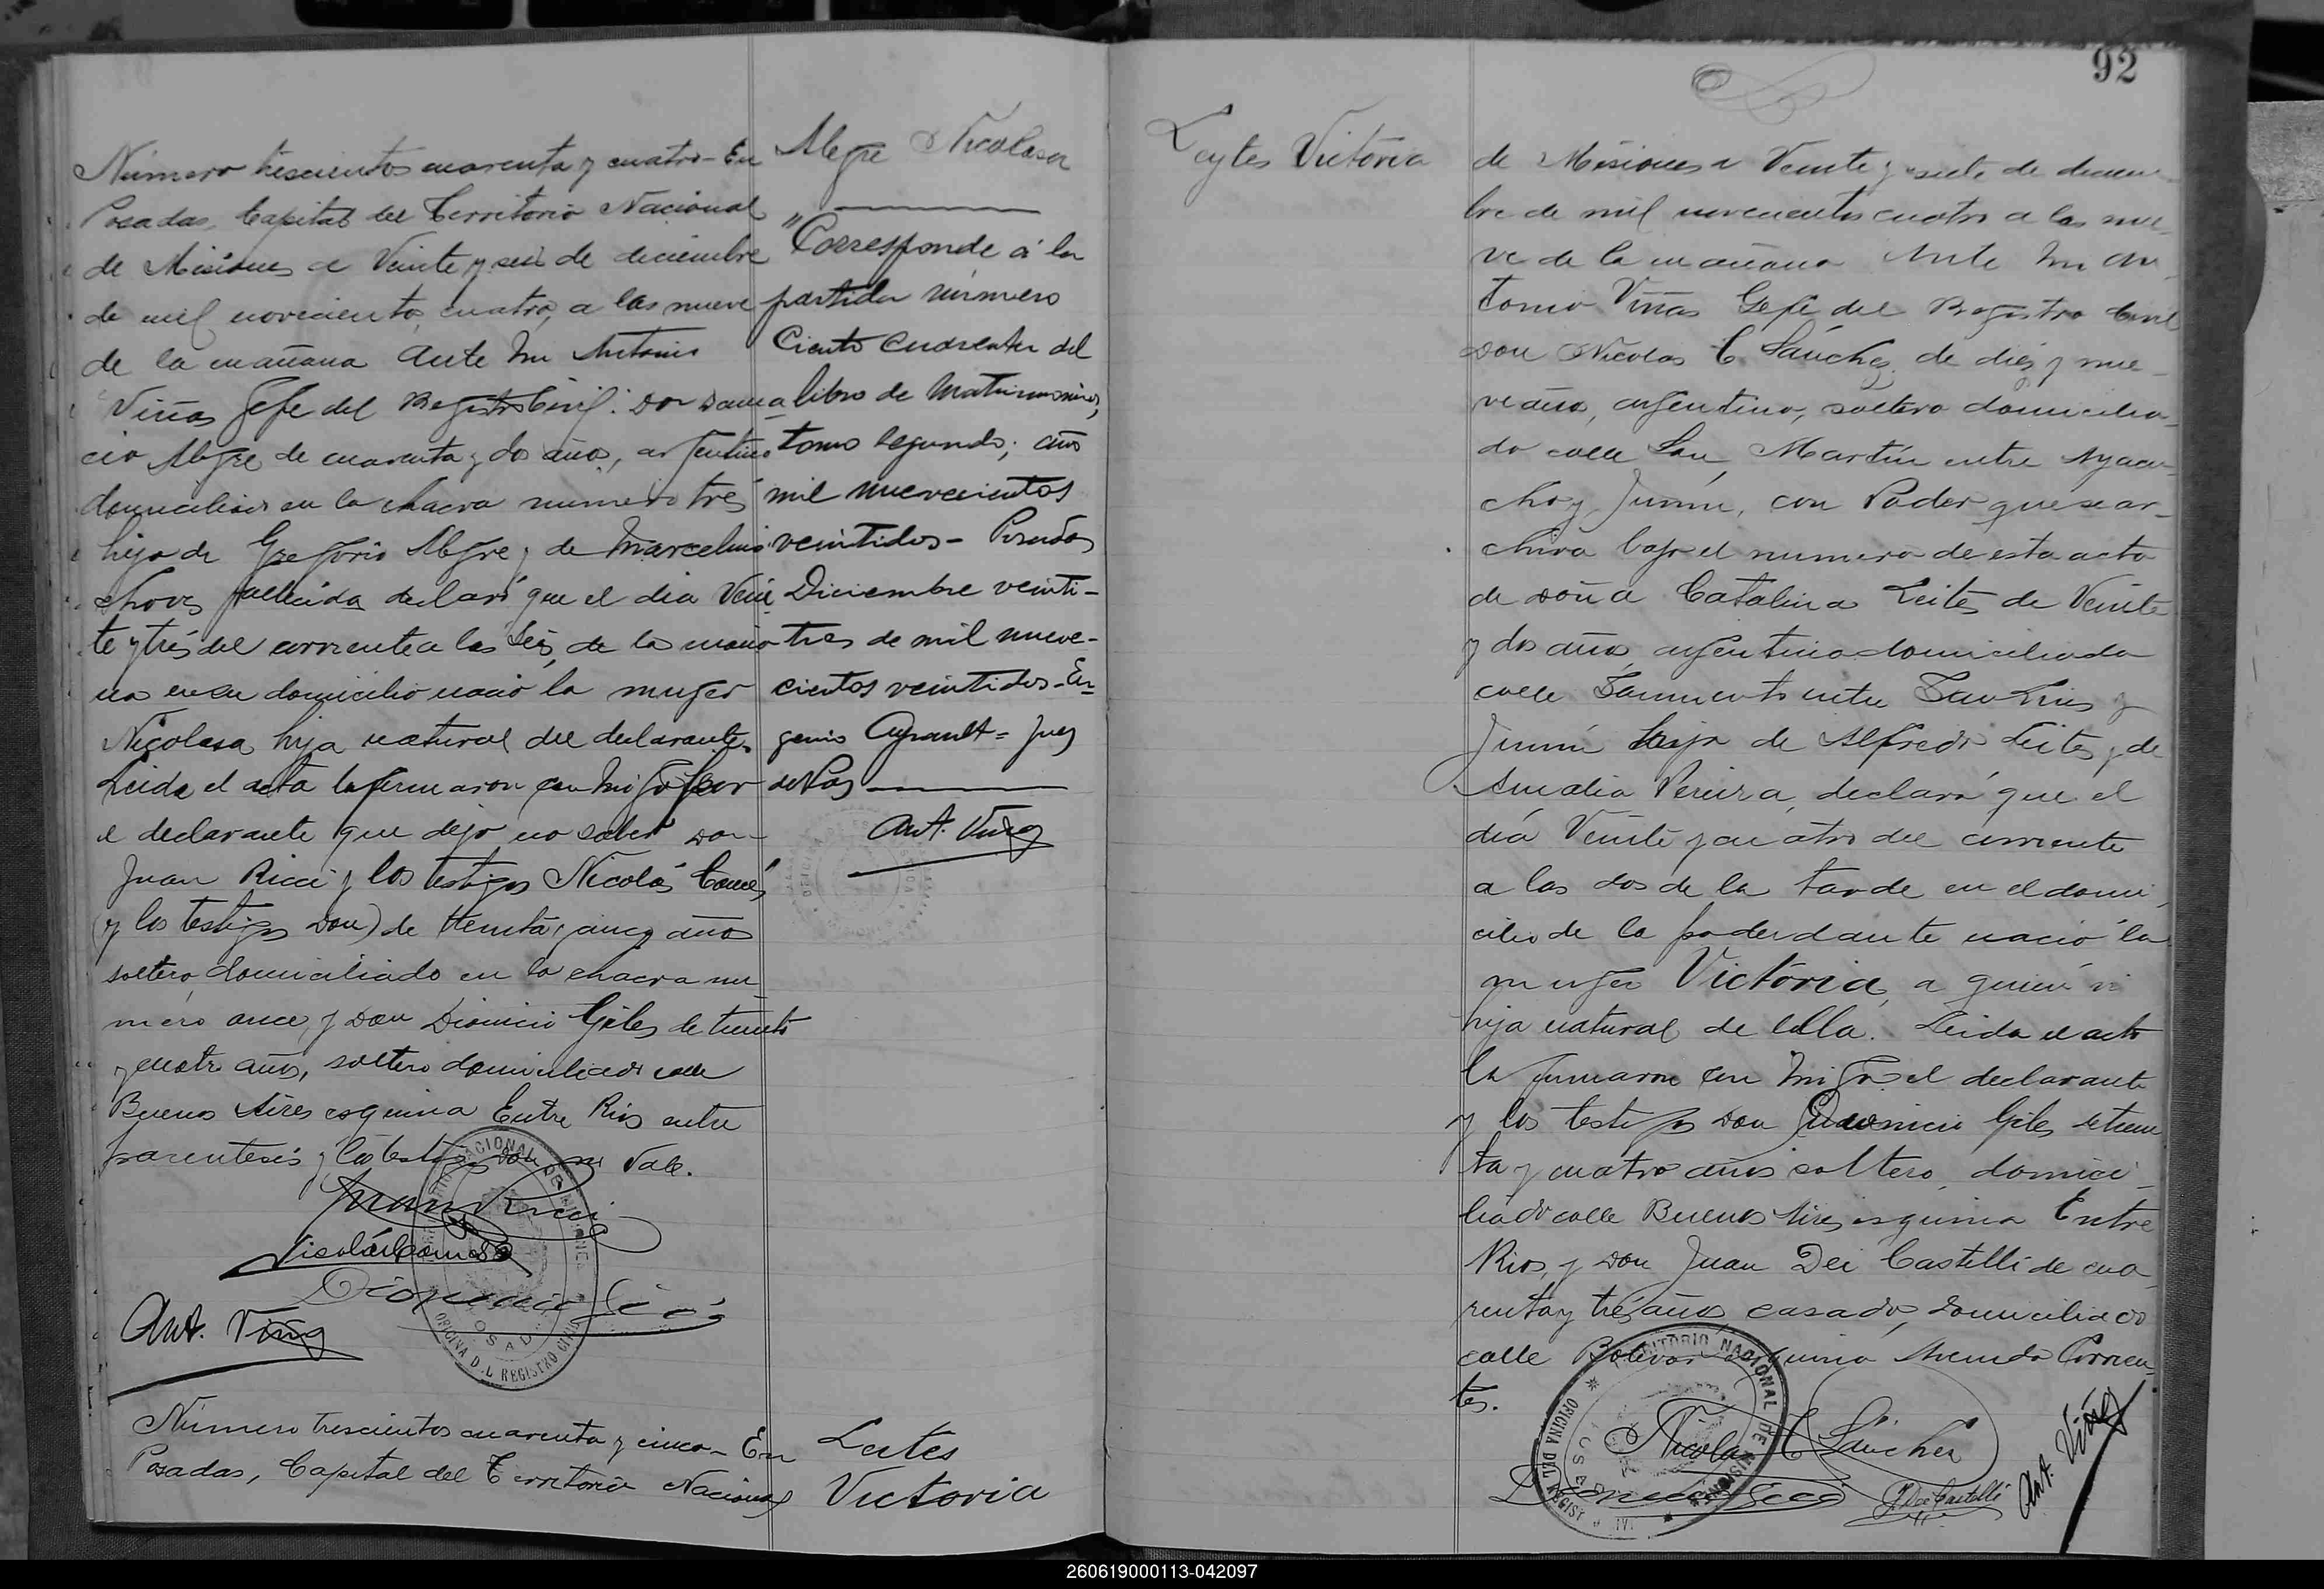 92
Número trescientos cuarenta y cuatro - En
Posadas, Capital del Territorio Nacional
de Misiones a Veinte y seis de diciembre
de mil novecientos cuatro, a las nueve
de la mañana Ante Mi Antonio
Viñas Gefe del Registro Civil: Don Dama
cio Alegre de cuarenta y dos años, argentino
domiciliado en la chacra numero tres
hijo de Gregorio Alegre y de Marcelina
Choves fallecida declaró que el dia Vein
te y tres del corriente a las seis de la maña
na en su domicilio nació la muger
Nicolasa, hija natural del declarante.
Leida el acta la firmaron con migo por
el declarante que dijo no saber Don
Juan Ricci y los testigos Nicolás Comés
(y los testigos Don) de treinta y cinco años
soltero, domiciliado en la chacra nu
mero once, y Don Dionicio Giles de treinta
y cuatro años, soltero domiciliado calle
Buenos Aires esquina Entre Rios entre
parentesis y los testigos Don no Vale.
Juan Ricci
Nicolás Comes
Ant. Viñas
TERRITORIO NACIONAL DE MISIONES
POSADAS
OFICINA DEL REGISTRO CIVIL
Número trescientos cuarenta y cinco - En
Posadas, Capital del Territorio Nacional
Alegre Nicolasa
"Corresponde á la
partida número
Ciento cuarenta del
libro de Matrimonios,
tomo segundo; año
mil nuevecientos
veintidos - Posadas
Diciembre veinti-
tres de mil nueve-
cientos veintidos - Eu-
genio Ayrault = Juez
de Paz
Ant. Viñas
Leites
Victoria
Leytes Victoria
de Misiones a Veinte y siete de diciem
bre de mil novecientos cuatro a las nue
ve de la mañana Ante Mi An
tonio Viñas Gefe del Registro Civil
Don Nicolas C. Sánchez, de diez y nue
ve años, argentino, soltero domicilia
do calle San Martín entre Ayacu
cho y Junin, con Poder que se ar
chiva bajo el numero de esta acta
de doña Catalina Leites de Veinte
y dos años argentina domiciliada
calle Sarmiento entre San Luis y
Junin hija de Alfredo Leites y de
Amalia Pereira, declaró que el
día Veinte y cuatro del corriente
a las dos de la tarde en el domi
cilio de la poderdante nació la
muger Victória, a quien vi
hija natural de ella. Leida el acta
la firmaron con migo el declarante
y los testigos Don Dionicio Giles de trein
ta y cuatro años soltero, domici
liado calle Buenos Aires esquina Entre
Rios, y Don Juan Dei Castelli de cua
renta y tres años casado, domiciliado
calle Bolivar esquina Avenida Corrien
tes.
TERRITORIO NACIONAL DE MISIONES
POSADAS
OFICINA DEL REGISTRO CIVIL
Nicolas C Sánchez
J Dei Castelli
Ant. Viñas
260619000113-042097